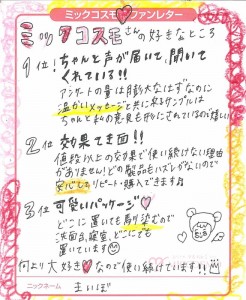 ミックコスモ♥ファンレター
ミックコスモさんの好きなところ
1位！ちゃんと声が届いて、聞いて
くれている!!
アンケートの量は膨大なはずなのに
温かいメッセージと共に来るサンプルは
ちゃんと私の意見を
2位 効果てき面!!
値段以上の効果で使い続けない理由
がありません！どの製品もハズレがないので
安心しリピート・購入できますね
3位 可愛いパッケージ♡
どこに置いても馴り染むので
洗面台、寝室、どこにでも
置いています
何より大好き♥なので使い続けています!!
ニックネーム
まいぽ